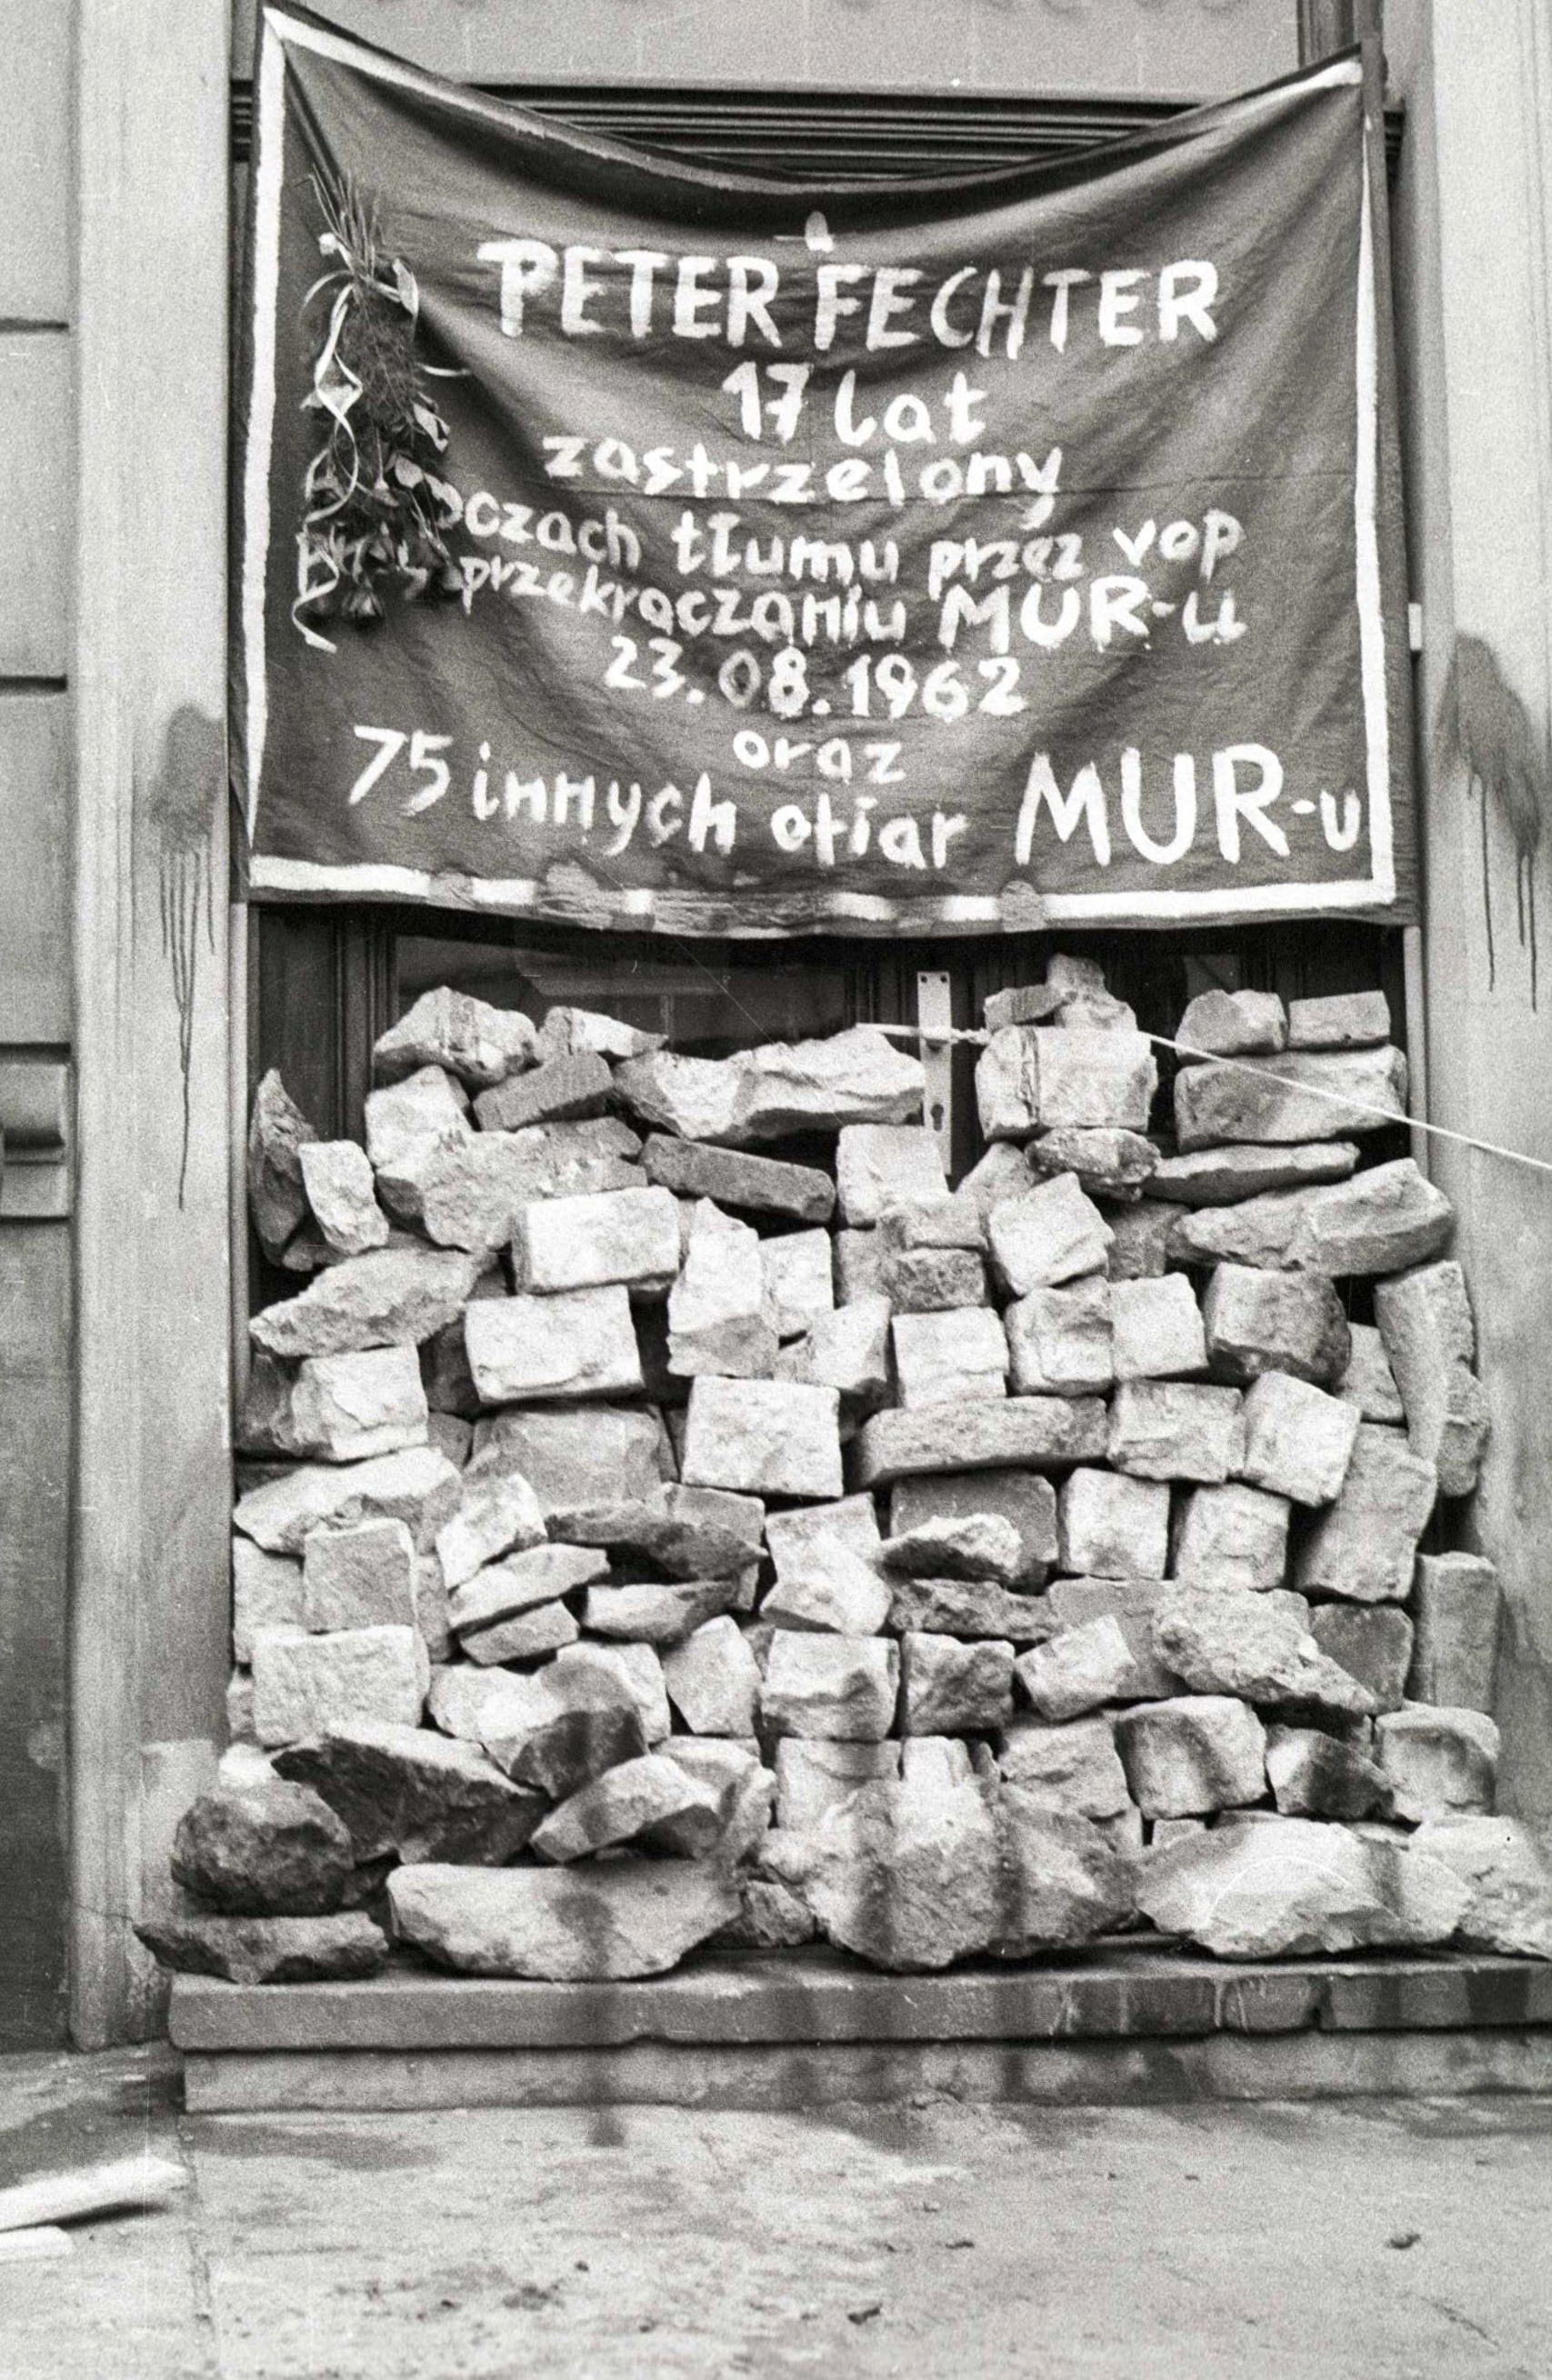 PETER FECHTER
17 lat
zastrzelony
oczach tłumu przez VOP
przekraczaniu MUR-u
23.08.1962
oraz
75 innych ofiar MUR-u